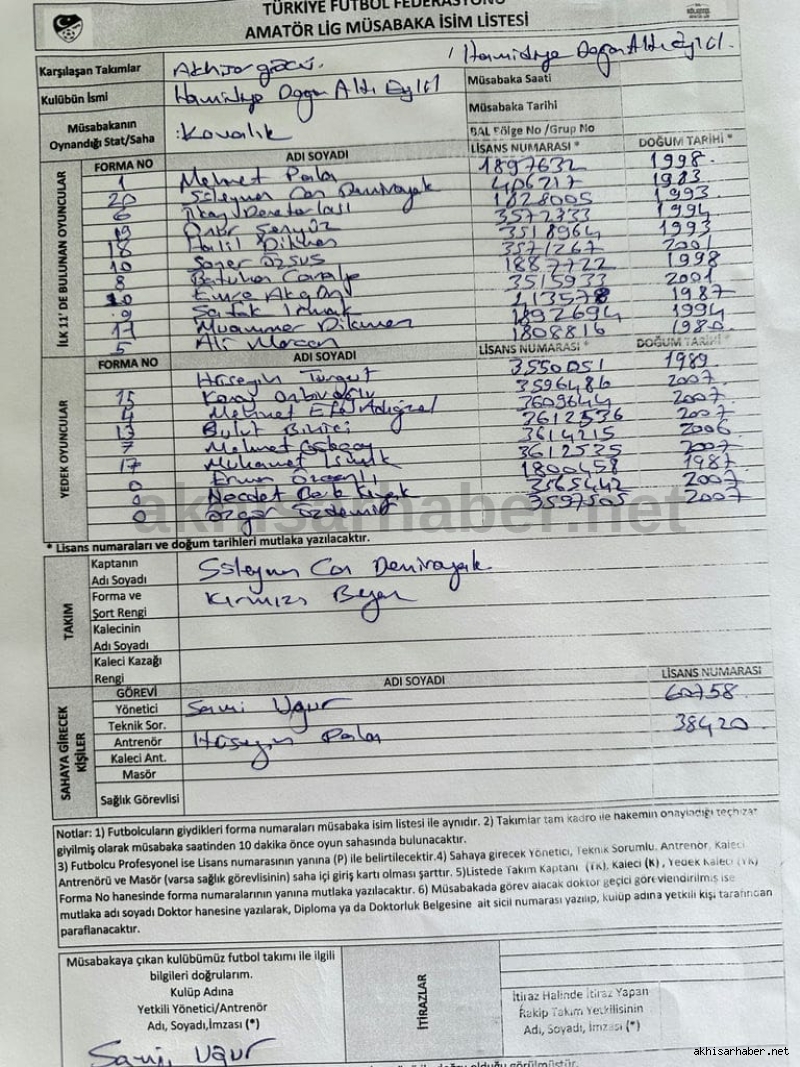 TÜRKİYE FUTBOL FEDERASYONU
AMATÖR LİG MÜSABAKA İSİM LİSTESİ
Karşılaşan Takımlar Akhisargücü. / Hamidiye Dogan Altı Eylül.
Kulübün İsmi Hamidiye Dogan Altı Eylül Müsabaka Saati
Müsabaka Tarihi
Müsabakanın
Oynandığı Stat/Saha :Kovalık BAL Bölge No /Grup No
İLK 11' DE BULUNAN OYUNCULAR
FORMA NO ADI SOYADI LİSANS NUMARASI * DOĞUM TARİHİ *
1 Mehmet Pala 1897632 1998
20 Süleyman Can Demirayak 406217 1983
6 İlkay 1828005 1993
19 Onur Şenyüz 3572333 1994
18 Halil Dikmen 3518964 1993
10 Soner Özsus 3571267 2001
8 Batuhan 1887722 1998
Emre Akgün 3515933 2001
9 1987
17 Muammer Dikmen 1892694 1994
5 Ali 1808816 1980
YEDEK OYUNCULAR
FORMA NO ADI SOYADI LİSANS NUMARASI * DOĞUM TARİHİ *
Hüseyin Turgut 3550051 1989
15 Koray 3596486 2007
Mehmet Efe 3609644 2007
13 Bulut Binici 3612536 2007
7 Mehmet 3614215 2006
17 Muhamet 3612525 2007
0 1800458 1987
0 Necdet Berk 3565442 2007
0 Özgür Özdemir 3597505 2007
akhisarhaber.net
* Lisans numaraları ve doğum tarihleri mutlaka yazılacaktır.
TAKIM
Kaptanın
Adı Soyadı Süleyman Can Demirayak
Forma ve
Şort Rengi Kırmızı Beyaz
Kalecinin
Adı Soyadı
Kaleci Kazağı
Rengi
SAHAYA GİRECEK KİŞİLER
GÖREVİ ADI SOYADI LİSANS NUMARASI
Yönetici Sami Uğur 60758
Teknik Sor.
Antrenör Hüseyin Pala 38420
Kaleci Ant.
Masör
Sağlık Görevlisi
Notlar: 1) Futbolcuların giydikleri forma numaraları müsabaka isim listesi ile aynıdır. 2) Takımlar tam kadro ile hakemin onayladığı teçhizat
giyilmiş olarak müsabaka saatinden 10 dakika önce oyun sahasında bulunacaktır.
3) Futbolcu Profesyonel ise Lisans numarasının yanına (P) ile belirtilecektir.4) Sahaya girecek Yönetici, Teknik Sorumlu, Antrenör, Kaleci
Antrenörü ve Masör (varsa sağlık görevlisinin) saha içi giriş kartı olması şarttır. 5)Listede Takım Kaptanı (TK), Kaleci (K) , Yedek Kaleci (YK)
Forma No hanesinde forma numaralarının yanına mutlaka yazılacaktır. 6) Müsabakada görev alacak doktor geçici görevlendirilmiş ise
mutlaka adı soyadı Doktor hanesine yazılarak, Diploma ya da Doktorluk Belgesine ait sicil numarası yazılıp, kulüp adına yetkili kişi tarafından
paraflanacaktır.
Müsabakaya çıkan kulübümüz futbol takımı ile ilgili
bilgileri doğrularım.
Kulüp Adına
Yetkili Yönetici/Antrenör
Adı, Soyadı,İmzası (*)
Sami Uğur
İTİRAZLAR
İtiraz Halinde İtiraz Yapan
Rakip Takım Yetkilisinin
Adı, Soyadı, İmzası (*)
doğru olduğu görülmüştür.
akhisarhaber.net